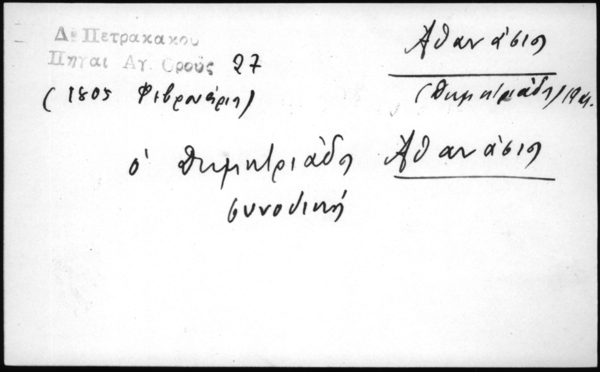 Δ. Πετρακακου
Πηγαι Αγ. Ορούς 27
(1805 Φεβρουάριος)
Ἀθανάσιος
(Δημητριάδος)
ὁ Δημητριάδος Ἀθανάσιος
συνοδική